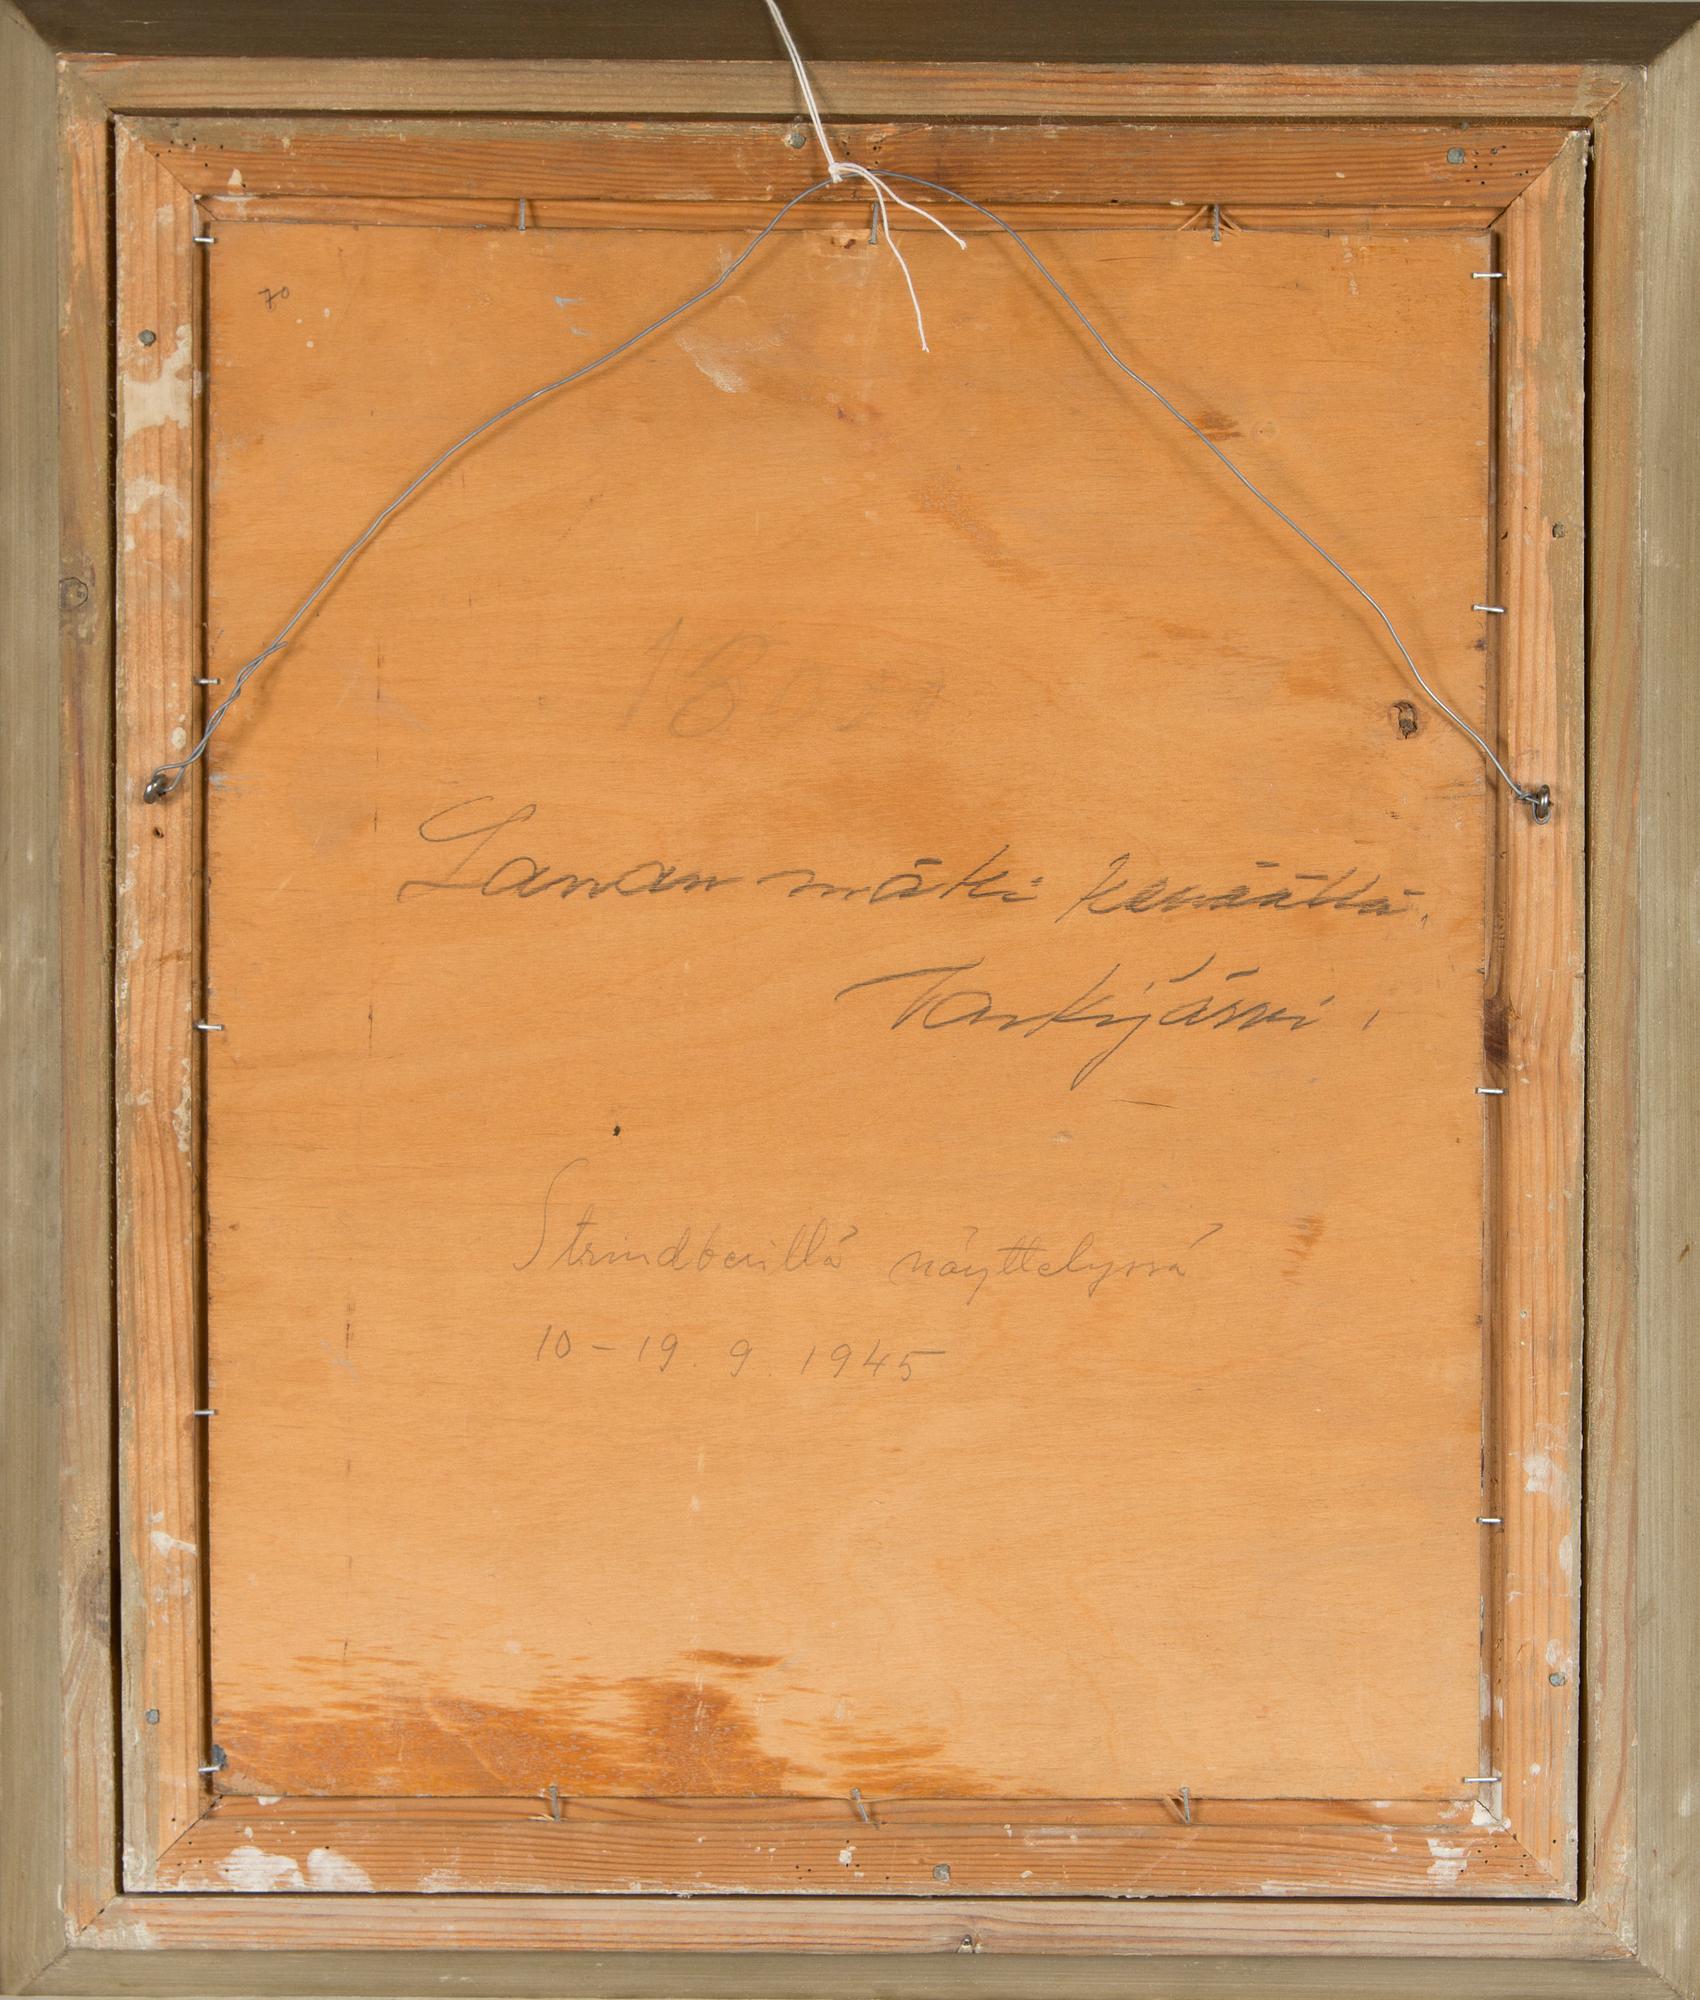 70
Lanan mäki keväällä.
Vaskijärvi.
Strindberillä näyttelyssä
10-19. 9. 1945